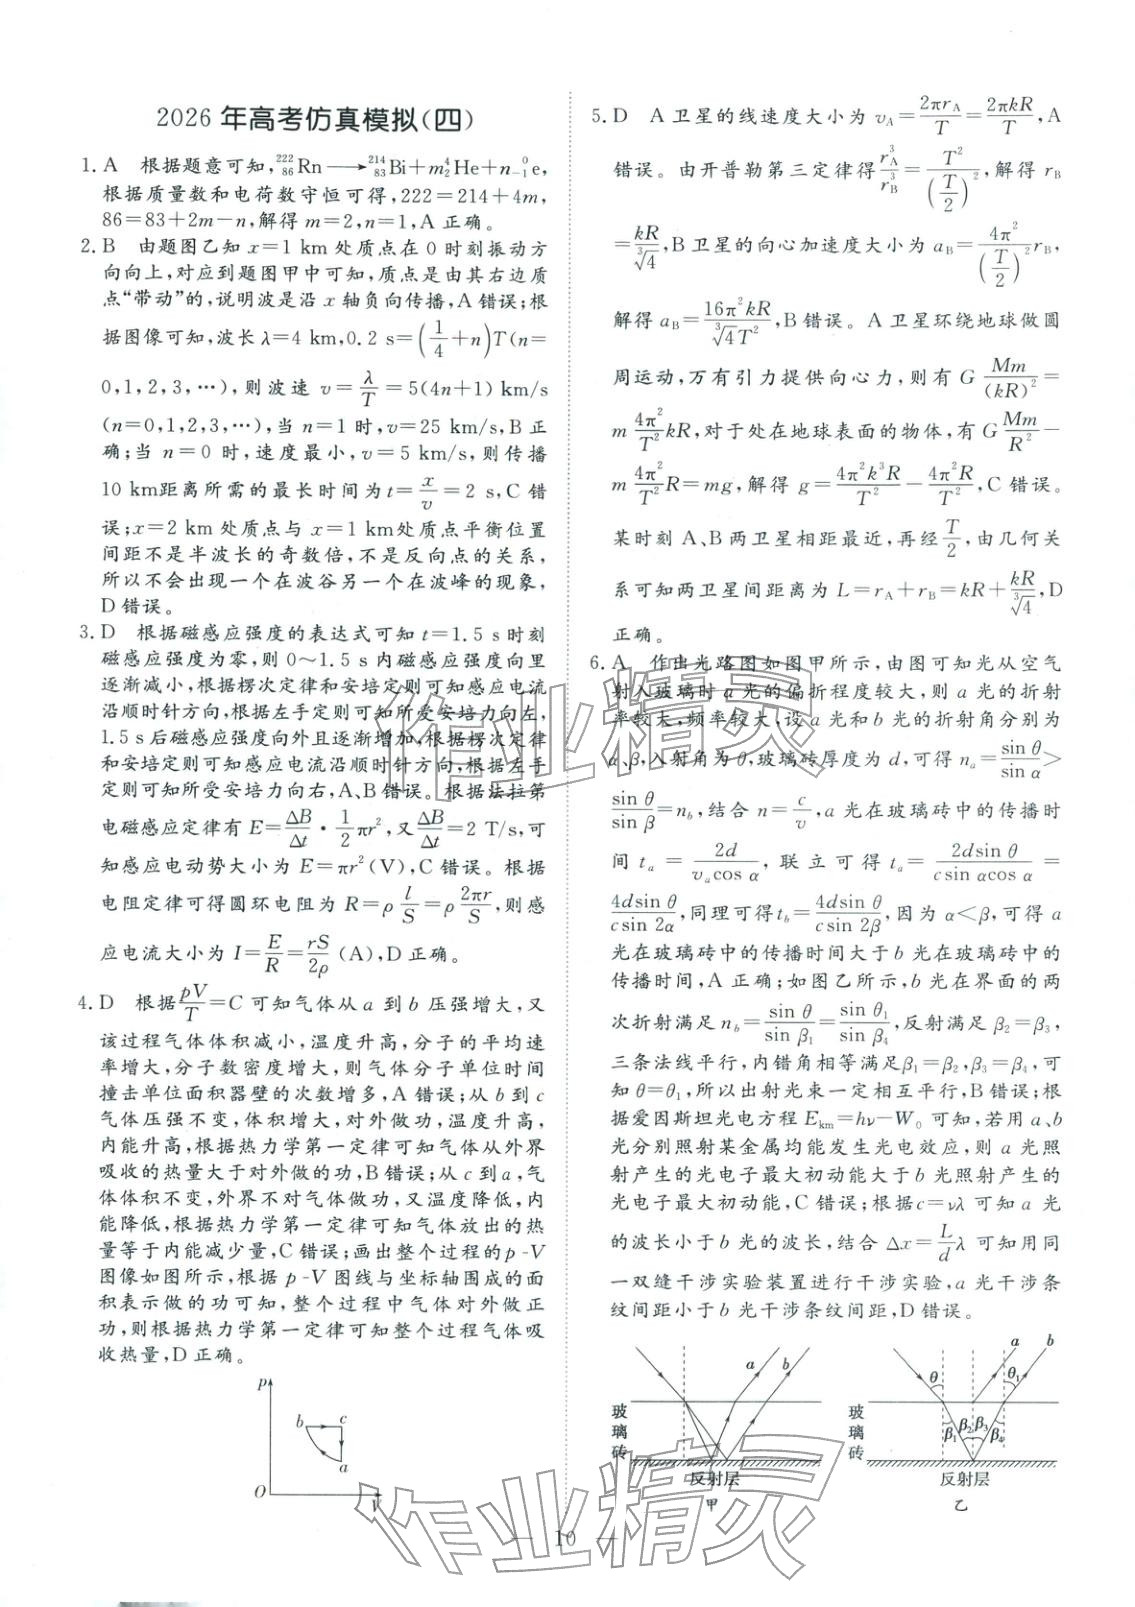 2026 年高考仿真模拟(四)
1. A 根据题意可知,²²²₈₆Rn⟶²¹⁴₈₃Bi+m⁴₂He+n⁰₋₁e,
根据质量数和电荷数守恒可得,222=214+4m,
86=83+2m-n,解得 m=2,n=1,A 正确。
2. B 由题图乙知 x=1 km 处质点在 0 时刻振动方
向向上,对应到题图甲中可知,质点是由其右边质
点“带动”的,说明波是沿 x 轴负向传播,A 错误;根
据图像可知,波长 λ=4 km,0.2 s=(1/4+n)T(n=
0,1,2,3,…),则波速 v=λ/T=5(4n+1) km/s
(n=0,1,2,3,…),当 n=1 时,v=25 km/s,B 正
确;当 n=0 时,速度最小,v=5 km/s,则传播
10 km距离所需的最长时间为 t=x/v=2 s,C 错
误;x=2 km 处质点与 x=1 km处质点平衡位置
间距不是半波长的奇数倍,不是反向点的关系,
所以不会出现一个在波谷另一个在波峰的现象,
D 错误。
3. D 根据磁感应强度的表达式可知 t=1.5 s 时刻
磁感应强度为零,则 0～1.5 s 内磁感应强度向里
逐渐减小,根据楞次定律和安培定则可知感应电流
沿顺时针方向,根据左手定则可知所受安培力向左,
1.5 s 后磁感应强度向外且逐渐增加,根据楞次定律
和安培定则可知感应电流沿顺时针方向,根据左手
定则可知所受安培力向右,A、B错误。根据法拉第
电磁感应定律有 E=ΔB/Δt·1/2πr²,又ΔB/Δt=2 T/s,可
知感应电动势大小为 E=πr²(V),C 错误。根据
电阻定律可得圆环电阻为 R=ρl/S=ρ2πr/S,则感
应电流大小为 I=E/R=rS/2ρ (A),D 正确。
4. D 根据pV/T=C 可知气体从 a 到 b 压强增大,又
该过程气体体积减小,温度升高,分子的平均速
率增大,分子数密度增大,则气体分子单位时间
撞击单位面积器壁的次数增多,A 错误;从 b 到 c
气体压强不变,体积增大,对外做功,温度升高,
内能升高,根据热力学第一定律可知气体从外界
吸收的热量大于对外做的功,B错误;从 c 到 a,气
体体积不变,外界不对气体做功,又温度降低,内
能降低,根据热力学第一定律可知气体放出的热
量等于内能减少量,C错误;画出整个过程的 p-V
图像如图所示,根据 p-V 图线与坐标轴围成的面
积表示做的功可知,整个过程中气体对外做正
功,则根据热力学第一定律可知整个过程气体吸
收热量,D 正确。
p
b
c
a
O
V
5. D A 卫星的线速度大小为 v_A=2πr_A/T=2πkR/T,A
错误。由开普勒第三定律得r_A³/r_B³=T²/(T/2)²,解得 r_B
=kR/∛4,B 卫星的向心加速度大小为 a_B=4π²/(T/2)² r_B,
解得 a_B=16π²kR/(∛4T²),B 错误。A 卫星环绕地球做圆
周运动,万有引力提供向心力,则有 G Mm/(kR)²=
m 4π²/T² kR,对于处在地球表面的物体,有 G Mm/R²-
m 4π²/T² R=mg,解得 g=4π²k³R/T²-4π²R/T²,C 错误。
某时刻 A、B 两卫星相距最近,再经T/2,由几何关
系可知两卫星间距离为 L=r_A+r_B=kR+kR/∛4,D
正确。
6. A 作出光路图如图甲所示,由图可知光从空气
射入玻璃时 a 光的偏折程度较大,则 a 光的折射
率较大,频率较大,设 a 光和 b 光的折射角分别为
α、β,入射角为θ,玻璃砖厚度为 d,可得 n_a=sin θ/sin α>
sin θ/sin β=n_b,结合 n=c/v,a 光在玻璃砖中的传播时
间 t_a=2d/(v_a cos α),联立可得 t_a=2dsin θ/(c sin αcos α)=
4dsin θ/(c sin 2α),同理可得t_b=4dsin θ/(c sin 2β),因为 α<β,可得 a
光在玻璃砖中的传播时间大于 b 光在玻璃砖中的
传播时间,A 正确;如图乙所示,b 光在界面的两
次折射满足 n_b=sin θ/sin β₁=sin θ₁/sin β₄,反射满足 β₂=β₃,
三条法线平行,内错角相等满足β₁=β₂,β₃=β₄,可
知 θ=θ₁,所以出射光束一定相互平行,B 错误;根
据爱因斯坦光电方程 E_km=hν-W₀ 可知,若用 a、b
光分别照射某金属均能发生光电效应,则 a 光照
射产生的光电子最大初动能大于 b 光照射产生的
光电子最大初动能,C 错误;根据c=νλ 可知 a 光
的波长小于 b 光的波长,结合 Δx=L/d λ 可知用同
一双缝干涉实验装置进行干涉实验,a 光干涉条
纹间距小于 b 光干涉条纹间距,D 错误。
a
b
玻璃砖
反射层
甲
a
b
θ
θ₁
玻璃砖
β₁
β₂
β₃
β₄
反射层
乙
— 10 —
作业精灵
作业精灵